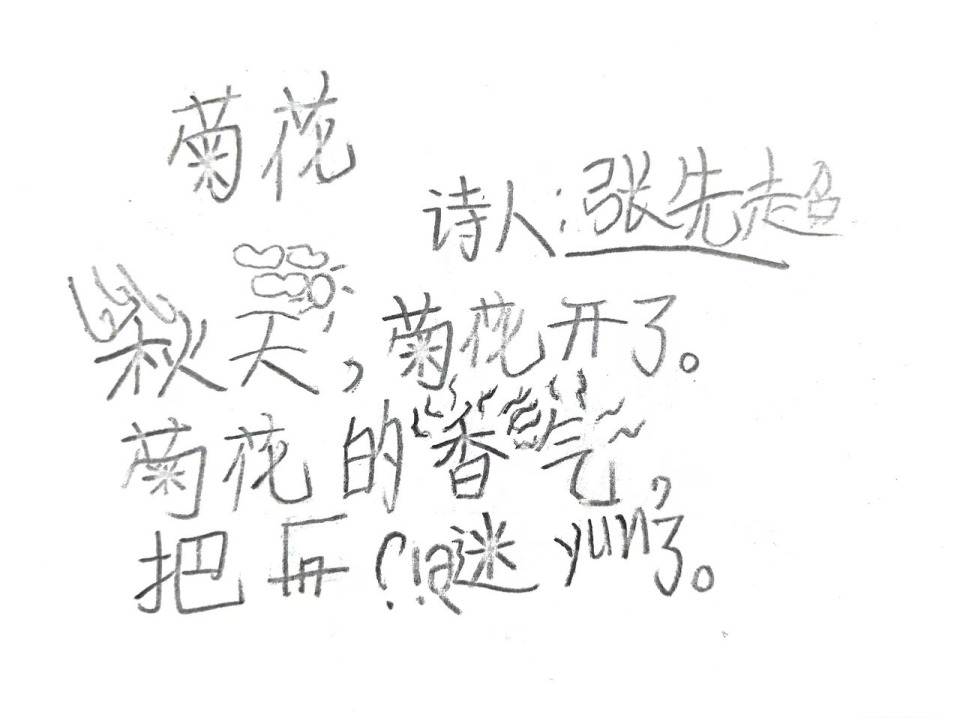 菊花
诗人:张先超
秋天,菊花开了。
菊花的香气,
把 ?!? 迷 yun了。